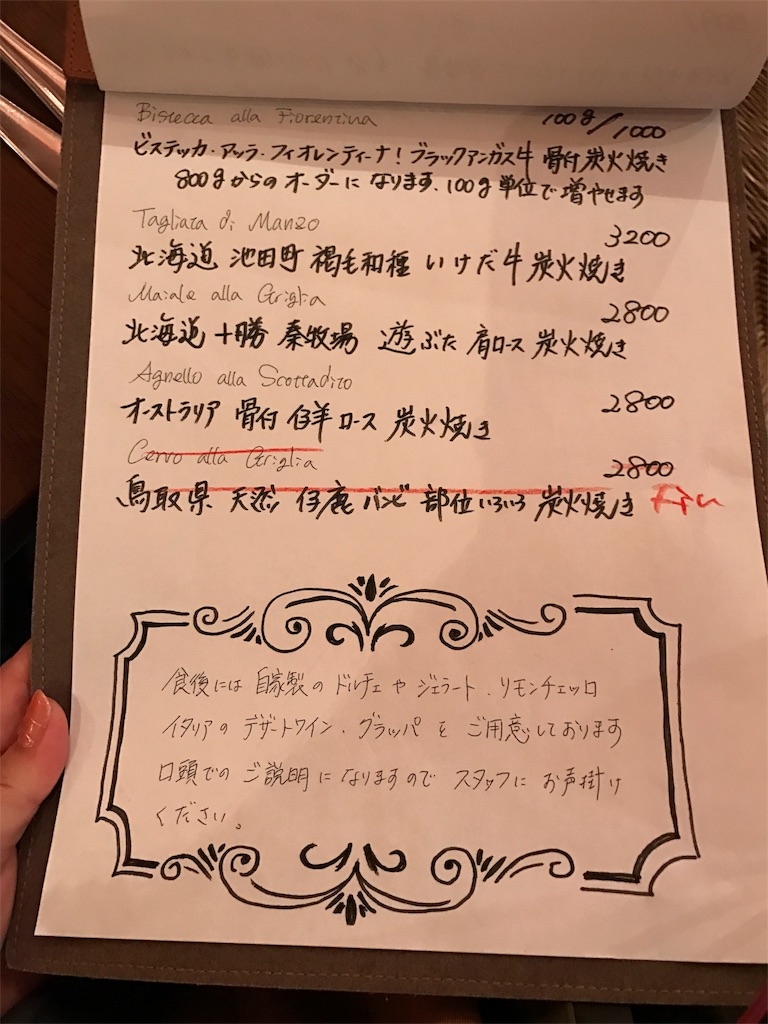 Bistecca alla Fiorentina 100g/1000
ビステッカ・アッラ・フィオレンティーナ!ブラックアンガス牛 骨付炭火焼き
800gからのオーダーになります、100g単位で増やせます
Tagliata di Manzo 3200
北海道 池田町 褐毛和種 いけだ牛 炭火焼き
Maiale alla Griglia 2800
北海道 十勝 秦牧場 遊ぶた 肩ロース 炭火焼き
Agnello alla Scottadito 2800
オーストラリア 骨付 仔羊ロース 炭火焼き
Cervo alla Griglia 2800
鳥取県 天然 仔鹿 バンビ 部位いろいろ 炭火焼き
食後には 自家製の ドルチェや ジェラート、リモンチェッロ
イタリアの デザートワイン、グラッパを ご用意しております
口頭での ご説明になりますので スタッフに お声掛け
ください。